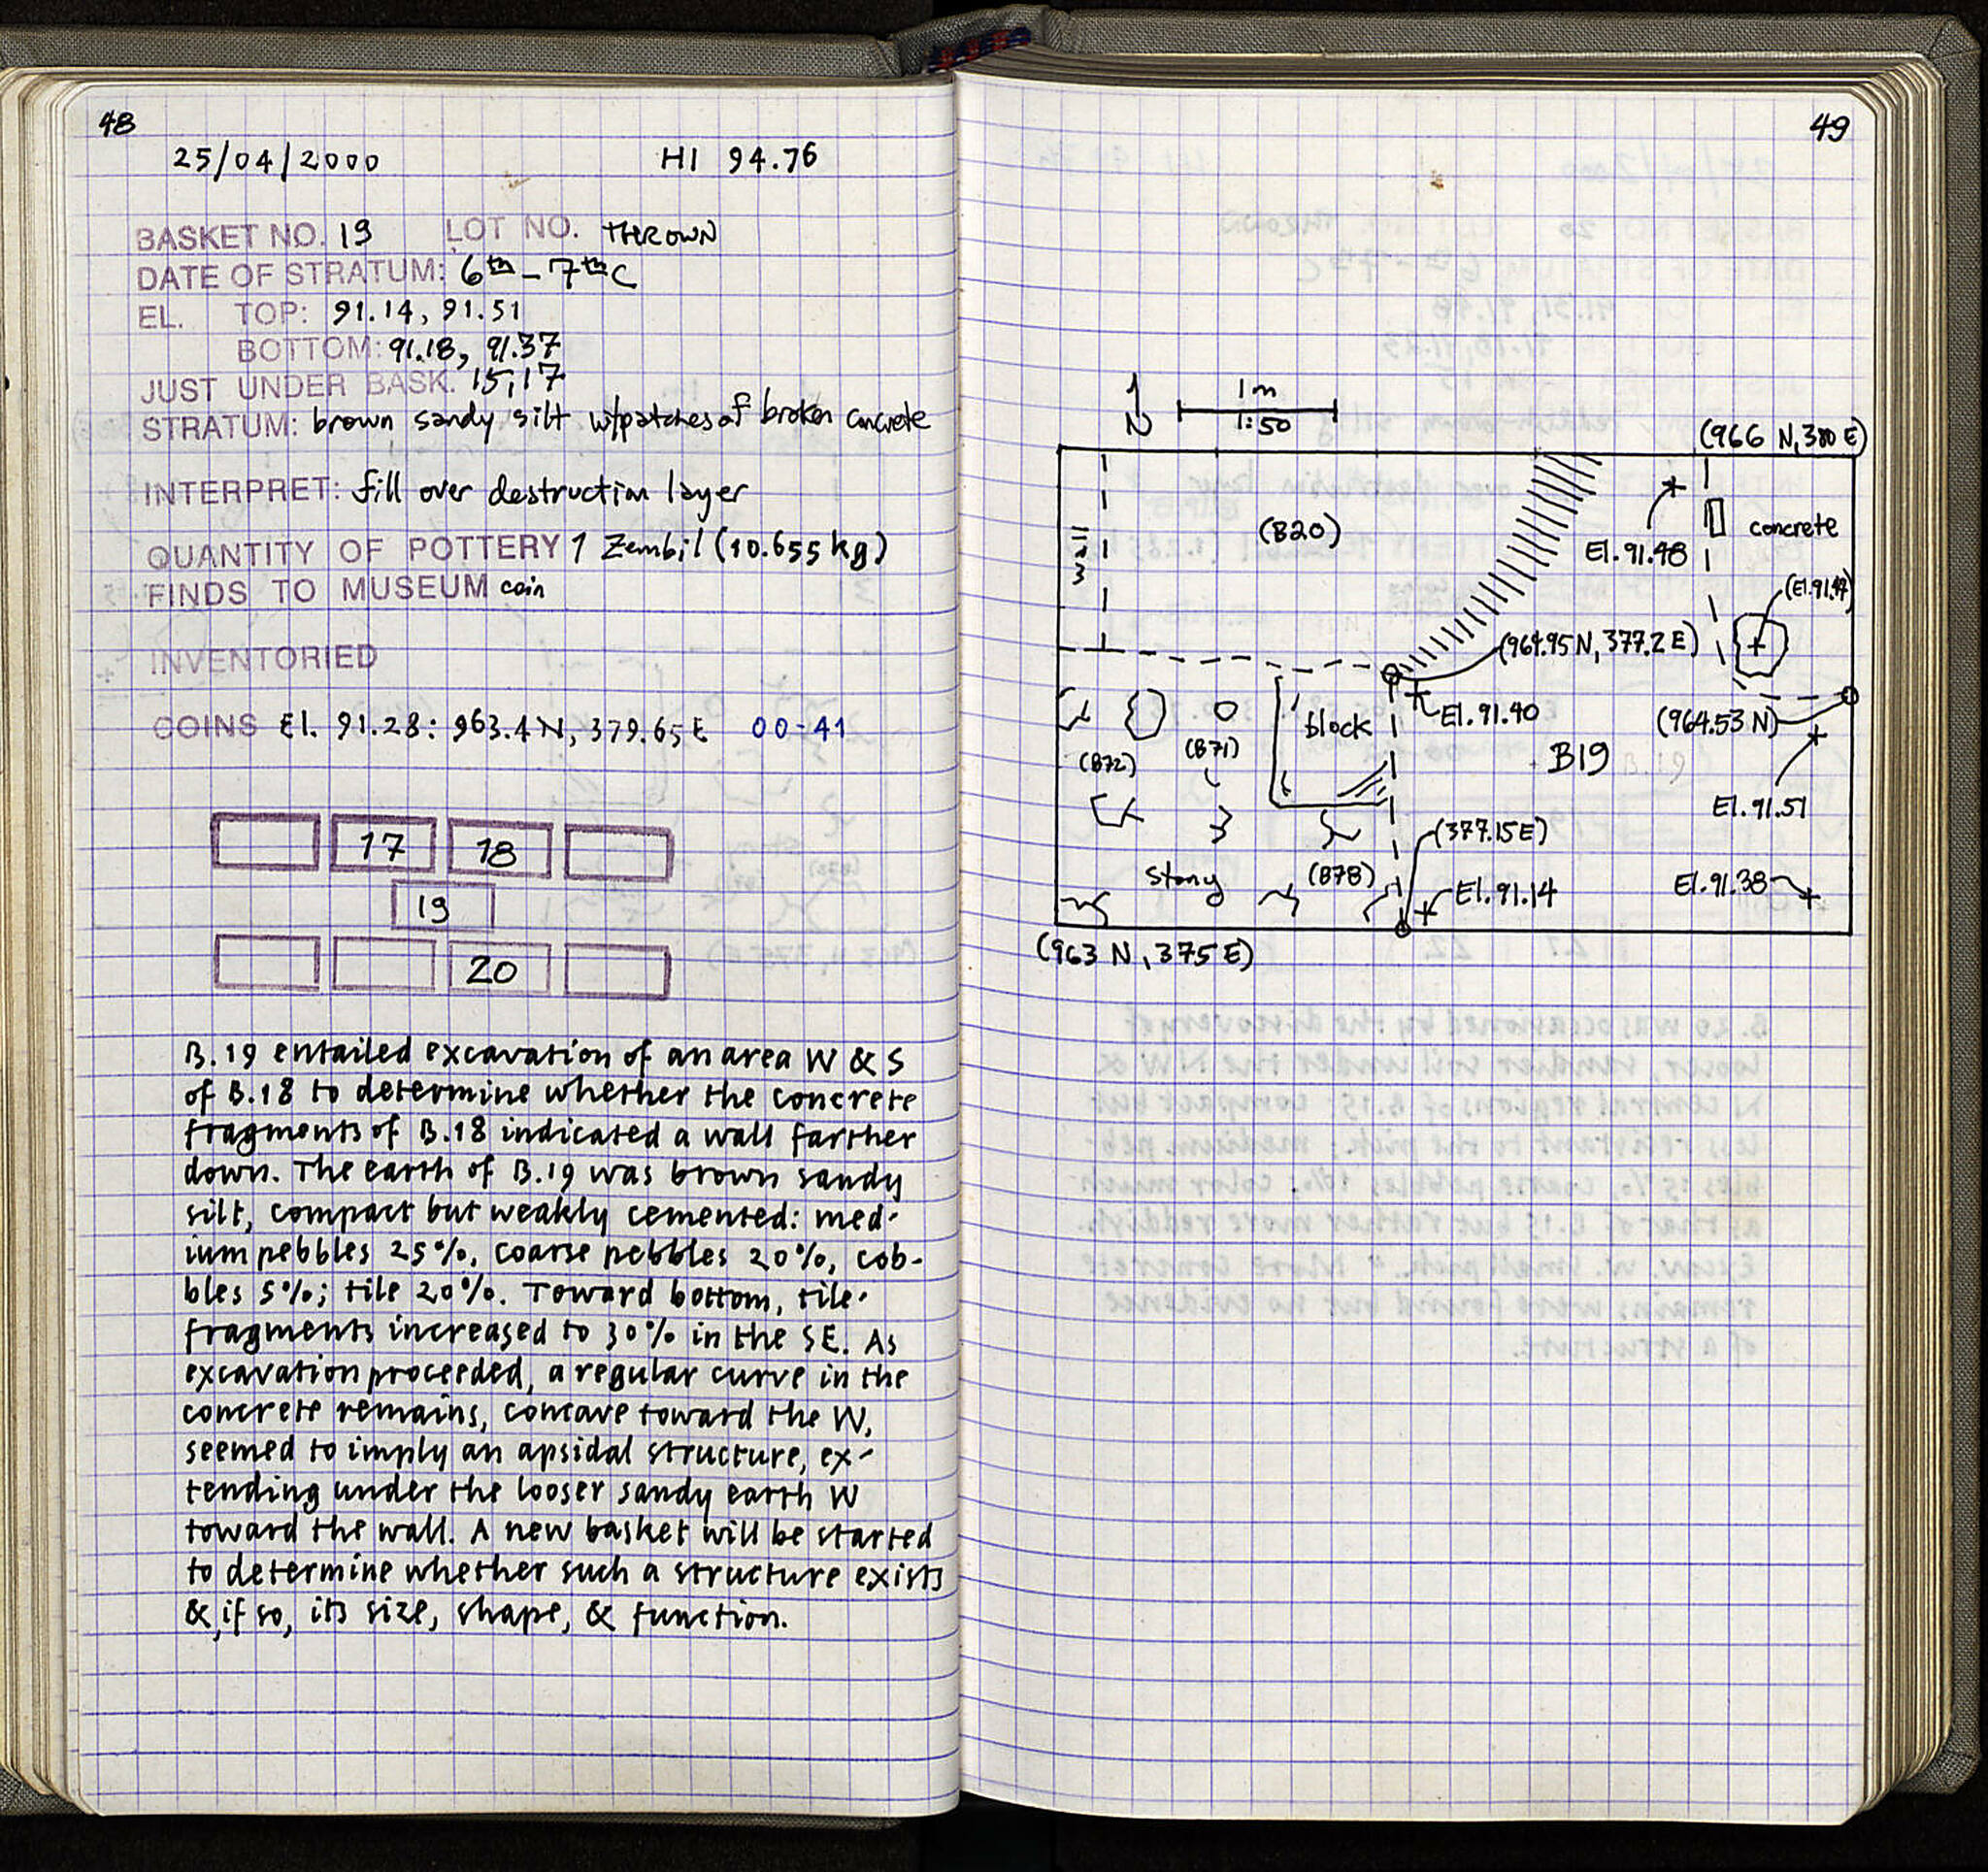 48
25/04/2000 HI 94.76
BASKET NO. 19 LOT NO. THROWN
DATE OF STRATUM: 6th - 7th C
EL. TOP: 91.14, 91.51
BOTTOM: 91.18, 91.37
JUST UNDER BASK. 15, 17
STRATUM: brown sandy silt w/patches of broken concrete
INTERPRET: fill over destruction layer
QUANTITY OF POTTERY 1 Zembil (10.655 kg)
FINDS TO MUSEUM coin
INVENTORIED
COINS El. 91.28: 963.4 N, 379.65 E 00-41
17 18
19
20
B.19 entailed excavation of an area W & S
of B.18 to determine whether the concrete
fragments of B.18 indicated a wall farther
down. The earth of B.19 was brown sandy
silt, compact but weakly cemented: med-
ium pebbles 25%, coarse pebbles 20%, cob-
bles 5%; tile 20%. Toward bottom, tile-
fragments increased to 30% in the SE. As
excavation proceeded, a regular curve in the
concrete remains, concave toward the W,
seemed to imply an apsidal structure, ex-
tending under the looser sandy earth W
toward the wall. A new basket will be started
to determine whether such a structure exists
&, if so, its size, shape, & function.
49
N 1m
1:50
(966 N, 380 E)
(B20)
El. 91.48
concrete
(964.95 N, 377.2 E)
El. 91.40
block
(964.53 N)
(B72)
(B71)
B19
El. 91.51
(377.15 E)
stony
(B78)
El. 91.14
El. 91.38
(963 N, 375 E)